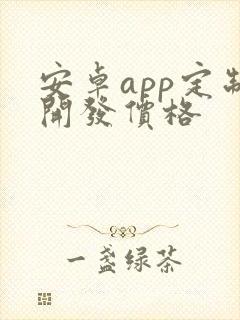 安卓app定制
開發價格
一盏绿茶